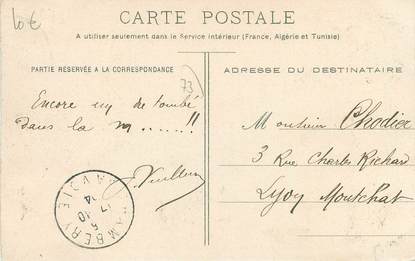 10€
CARTE POSTALE
A utiliser seulement dans le Service intérieur (France, Algérie et Tunisie)
PARTIE RÉSERVÉE A LA CORRESPONDANCE
73
Encore un de tombé
dans la m.......!!
ADRESSE DU DESTINATAIRE
Monsieur Chodier
3 Rue Charles Richard
Lyon Montchat
CHAMBERY
17 - 10
5
14
SAVOIE